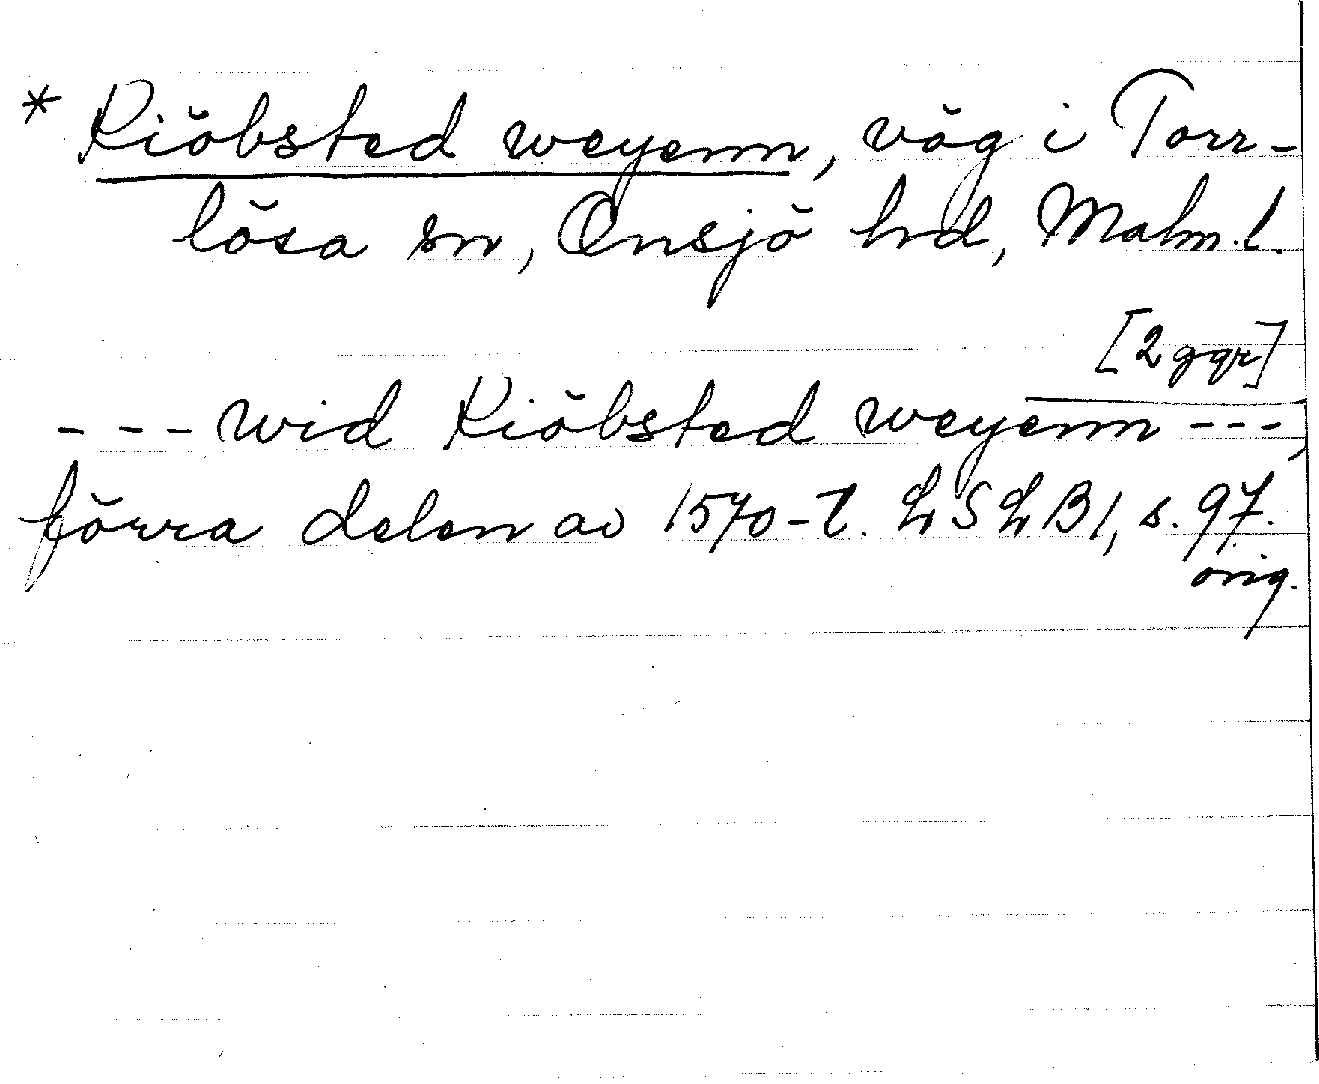 * Kiöbsted weyenn, väg i Torr-
lösa sn, Onsjö hd, Malm. l.
[2 ggr]
--- wid Kiöbsted weyenn ---,
förra delen av 1570-t. LSLB 1, s. 97.
orig.